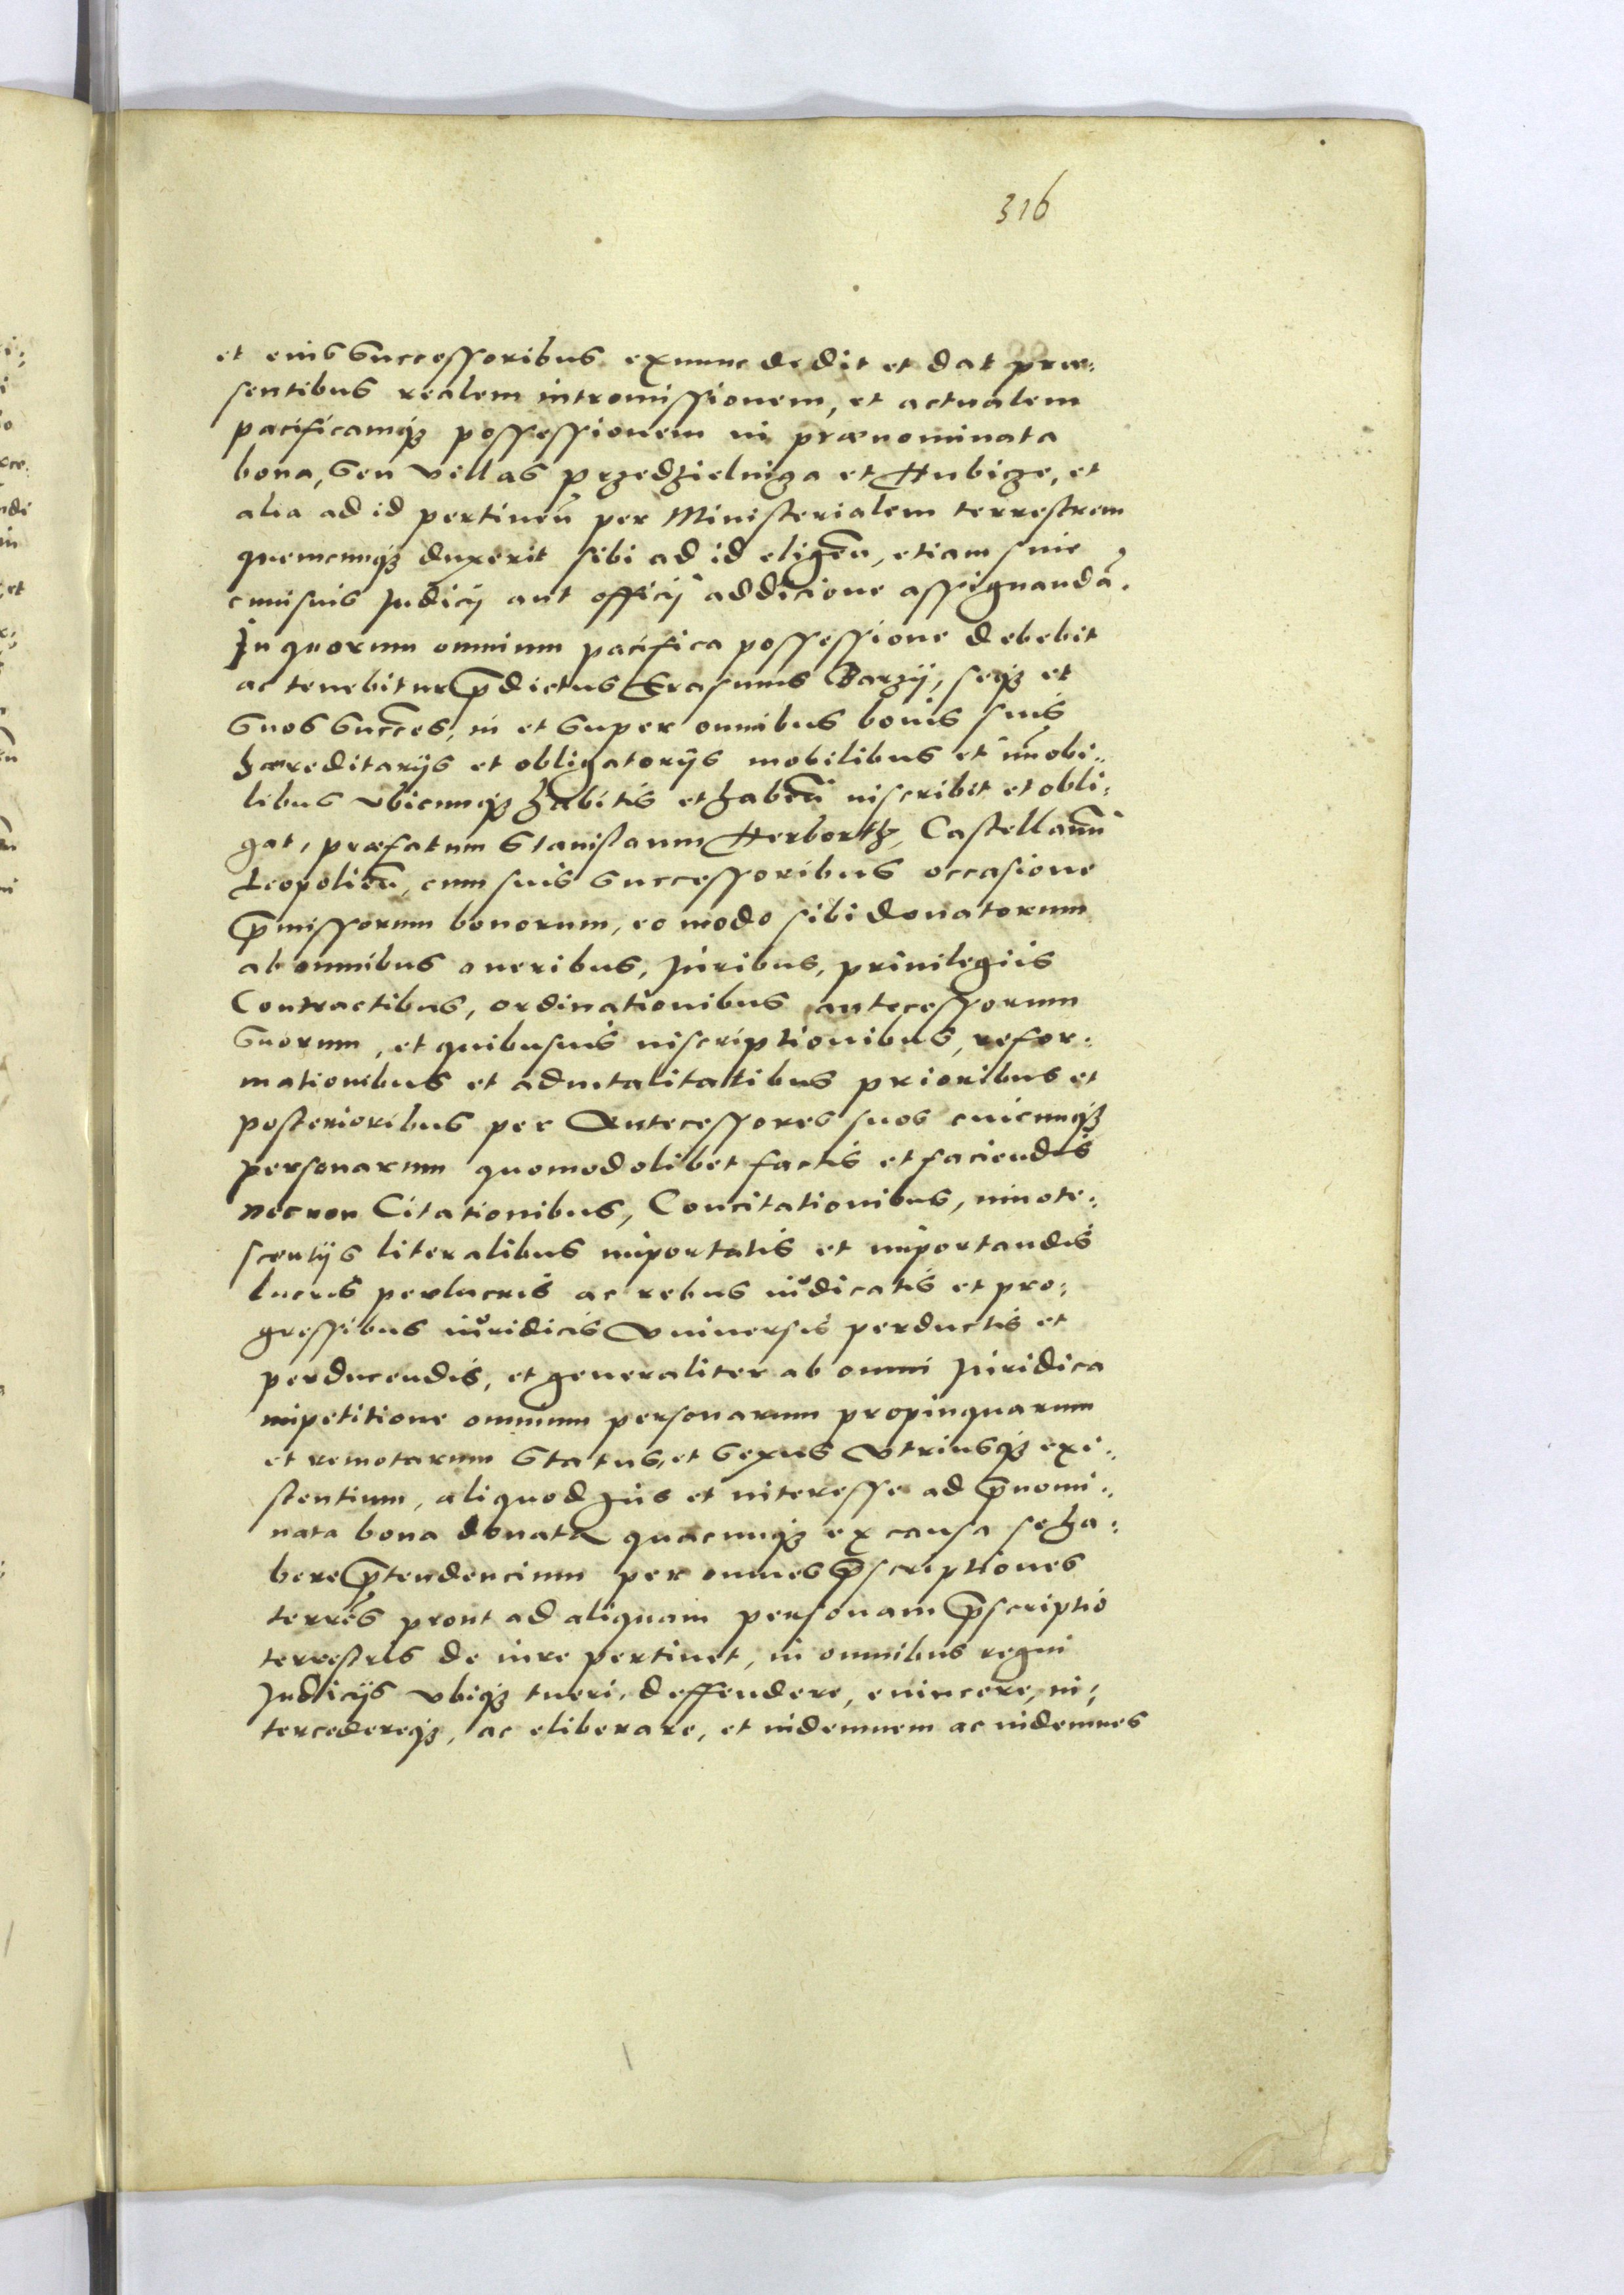 316
et eius Successoribus exnunc dedit et dat præ:
sentibus realem intromissionem, et actualem
pacificamq3 possessionem in prænominata
bona, Seu villas Przedzielnicza et Hubicze, et
alia ad id pertineñ per Ministerialem terrestrem
quemcunq3 duxerit sibi ad id eligeñ, etiam sine
cuiusuis Judicij aut officij addicione assignandã.
In quorum omnium pacifica possessione debebit
ac tenebitur p̃dictus Erasmus Barzij, seq3 et
Suos Succẽs, in et Super omnibus bonis suis
hæreditarijs et obligatorijs mobilibus et im̃obi:
libus vbicunq3 habitis et habeñ inscribit et obli:
gat, præfatum Stanislaum Herborth, Castellanũ
Leopolieñ, cum suis Successoribus occasione
p̃missorum bonorum, eo modo sibi donatorum
ab omnibus oneribus, Juribus, priuilegiis
Contractibus, ordinationibus antecessorum
Suorum, et quibusuis inscriptionibus, refor:
mationibus et aduitalitatibus prioribus et
posterioribus per Antecessores suos cuicunq3
personarum quomodolibet factis et faciendis
necnon Citationibus, Concitationibus, innote:
scentijs literalibus importatis et importandis
lucris perlucris ac rebus iudicatis et pro:
gressibus iuridicis Vniuersis perductis et
perducendis, et generaliter ab omni Juridica
impetitione omnium personarum propinquarum
et remotarum Status, et Sexus Vtriusq3 exi:
stentium, aliquod Jus et interesse ad p̃nomi:
nata bona donata quacunq3 ex causa se ha:
bere p̃tendencium per omnes p̃scriptiones
terrẽs prout ad aliquam personam p̃scriptio
terrestris de iure pertinet, in omnibus regni
Judicijs vbiq3 tueri, deffendere, euincere, in:
tercedereq3, ac eliberare, et indemnem ac indemnes